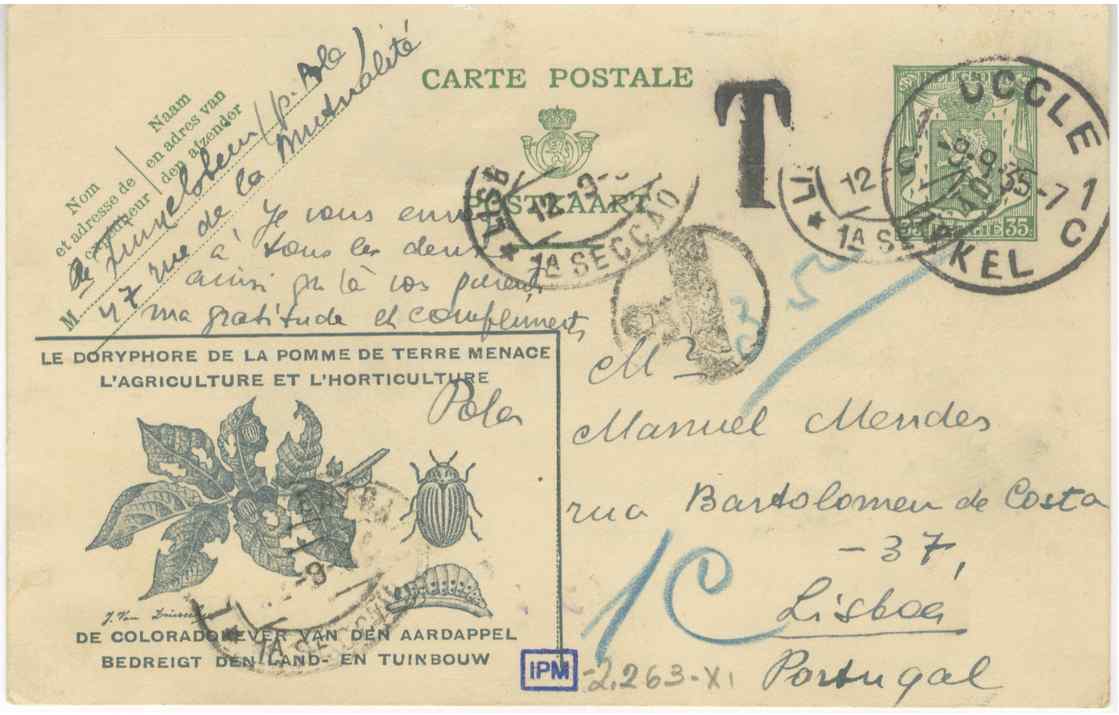 CARTE POSTALE
POSTKAART
Naam
en adres van
den afzender
Nom
et adresse de
M.
p. Ale
47 rue de la Mutualité
Je vous
à tous les deux
ainsi qu'à vos parents
ma gratitude et compliments
LE DORYPHORE DE LA POMME DE TERRE MENACE
L'AGRICULTURE ET L'HORTICULTURE
DE COLORADOKEVER VAN DEN AARDAPPEL
BEDREIGT DEN LAND- EN TUINBOUW
T
LISB
12 -9-
* 1A SECÇÃO
LI
12
* 1A SE
UCCLE 1
-9-9-35-7
C
UKKEL
BELGIQ
35c
35c
T
1A SEC
-9-
1C
Mr
Manuel Mendes
rua Bartolomeu de Costa
-37,
Lisboa
Portugal
IPM
-2.263-XI